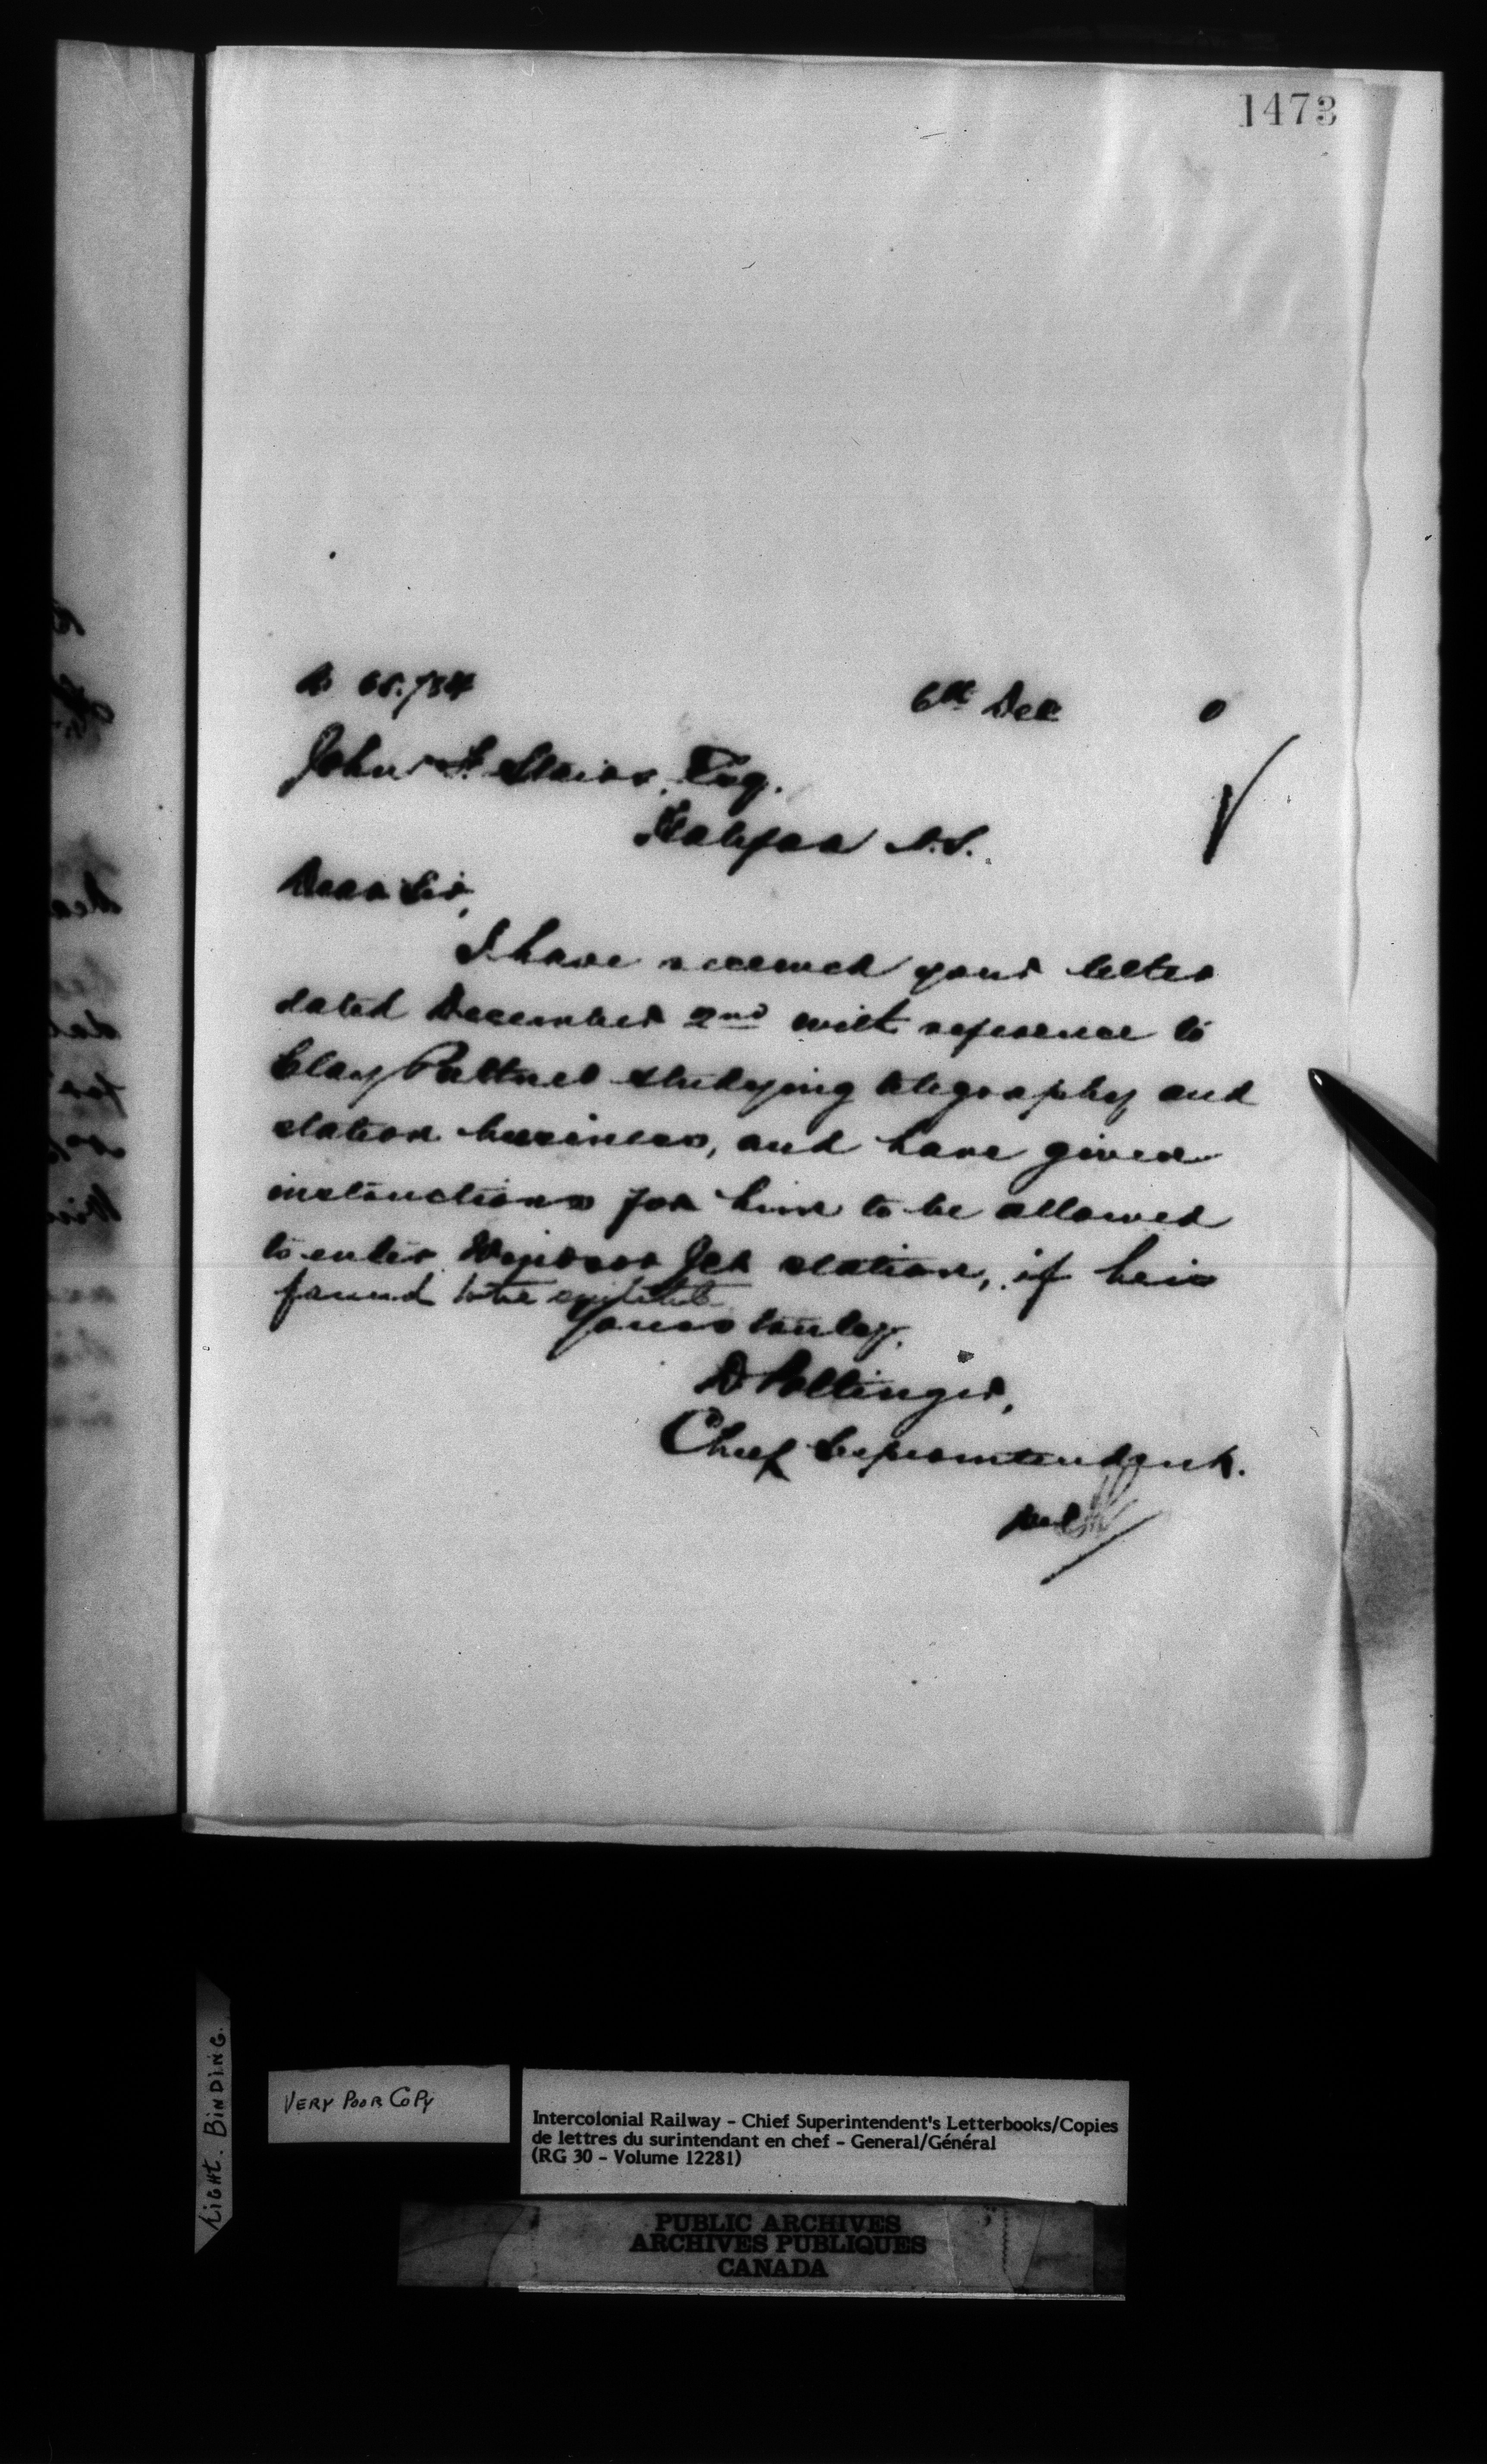 1473
65.734
6th Dec 0
John F Stairs, Esq.
Halifax N.S.
Dear Sir,
I have received your letter
dated December 2nd with reference to
Clay studying telegraphy and
station business, and have given
instructions for him to be allowed
to enter Windsor Jct station, if he is
found to be
Yours truly,
D Pottinger,
Chief Superintendent.
VERY POOR COPY
TIGHT. BINDING.
Intercolonial Railway - Chief Superintendent's Letterbooks/Copies
de lettres du surintendant en chef - General/Général
(RG 30 - Volume 12281)
PUBLIC ARCHIVES
ARCHIVES PUBLIQUES
CANADA